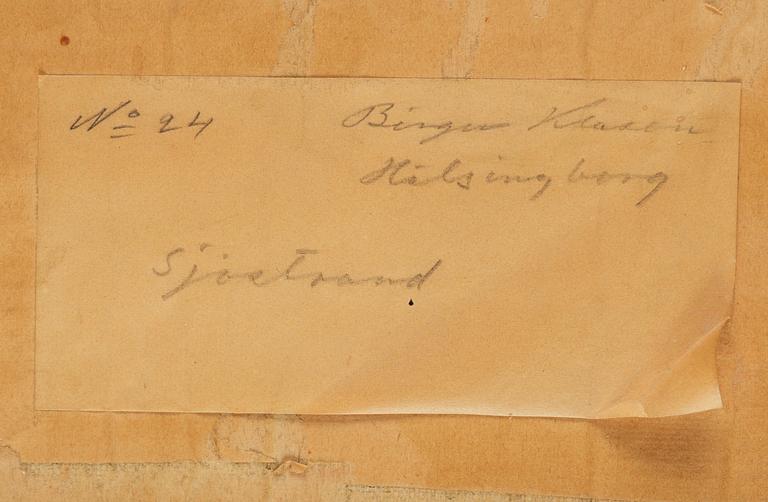 No 24 Birger
Helsingborg
Sjöstrand